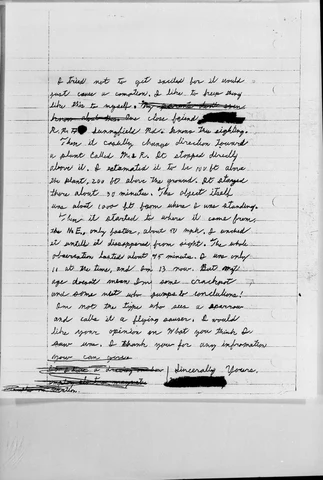 I tried not to get excited for it would
just cause a comotion. I like to keep things
like this to myself. My parents don't even
know about this. One close friend
R.R. # Sunnyfield Rd. knows this sighting.
Then it casually change direction toward
a plant called M&R. It stopped directly
above it. I estamated it to be 100 ft above
the plant, 200 ft above the ground. It stayed
there about 30 minutes. The object itself
was about 1000 ft from where I was standing.
Then it started to where it came from,
the N.E., only faster, about 40 mph. I watched
it untill it disappeared from sight. The whole
observation lasted about 45 minute. I was only
11 at the time, and I'm 13 now. But my
age doesn't mean I'm some crackpot
and some nut who jumps to conclutions!
I'm not the type who sees a sparrow
and calls it a flying sauser. I would
like your opinion on what you think I
saw was. I thank you for any infromation
you can give
Sincerally Yours,